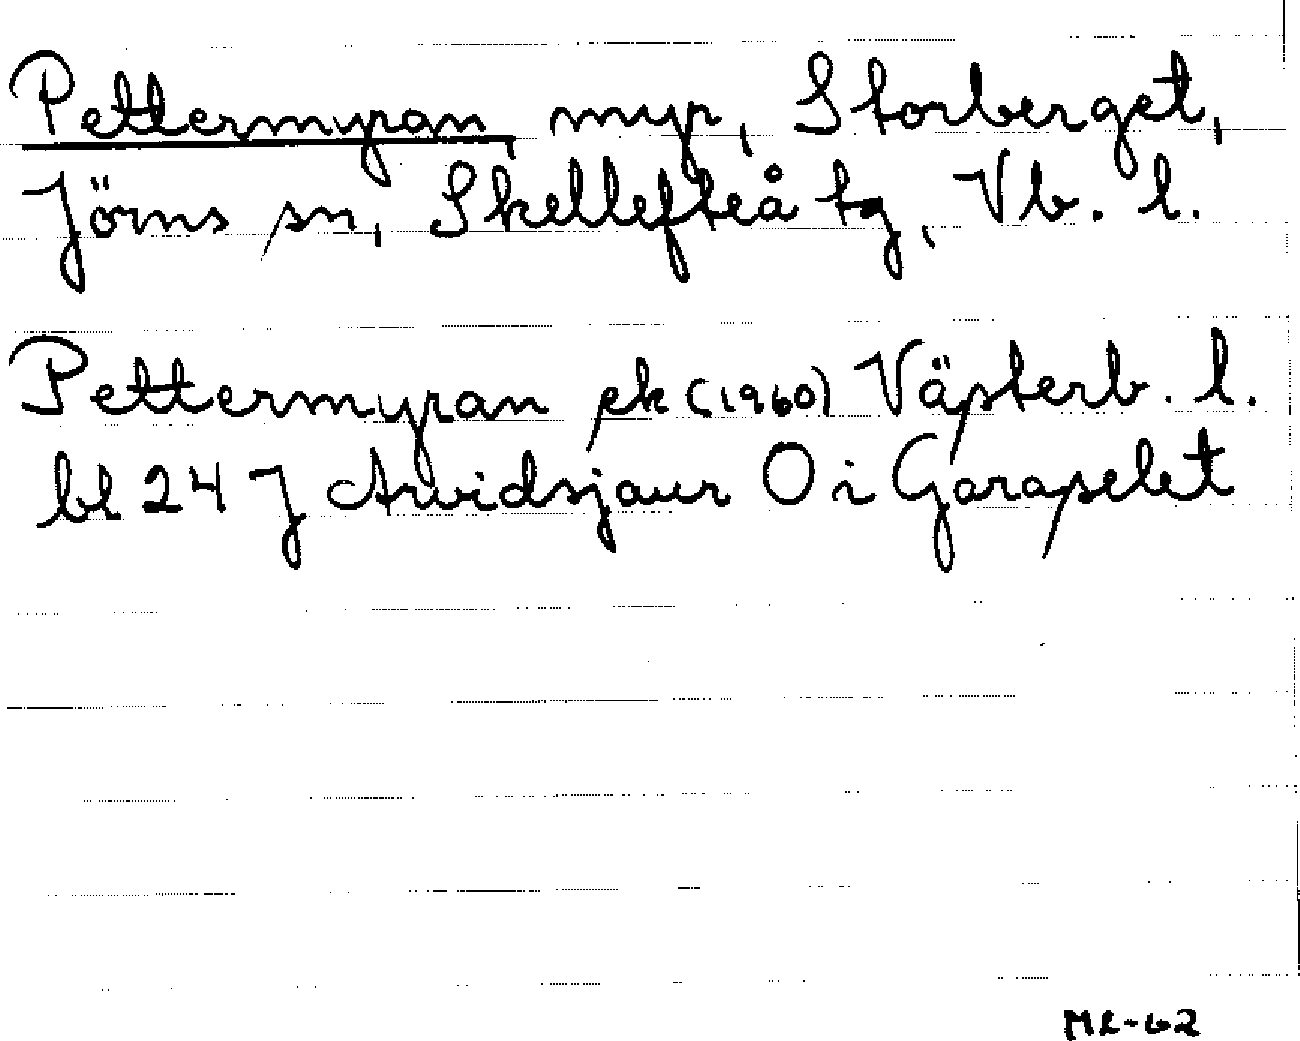 Pettermyran, myr, Storberget,
Jörns sn, Skellefteå tg, Vb. l.
Pettermyran ek (1960) Västerb. l.
bl 24 J Arvidsjaur O i Garaselet
ML-62